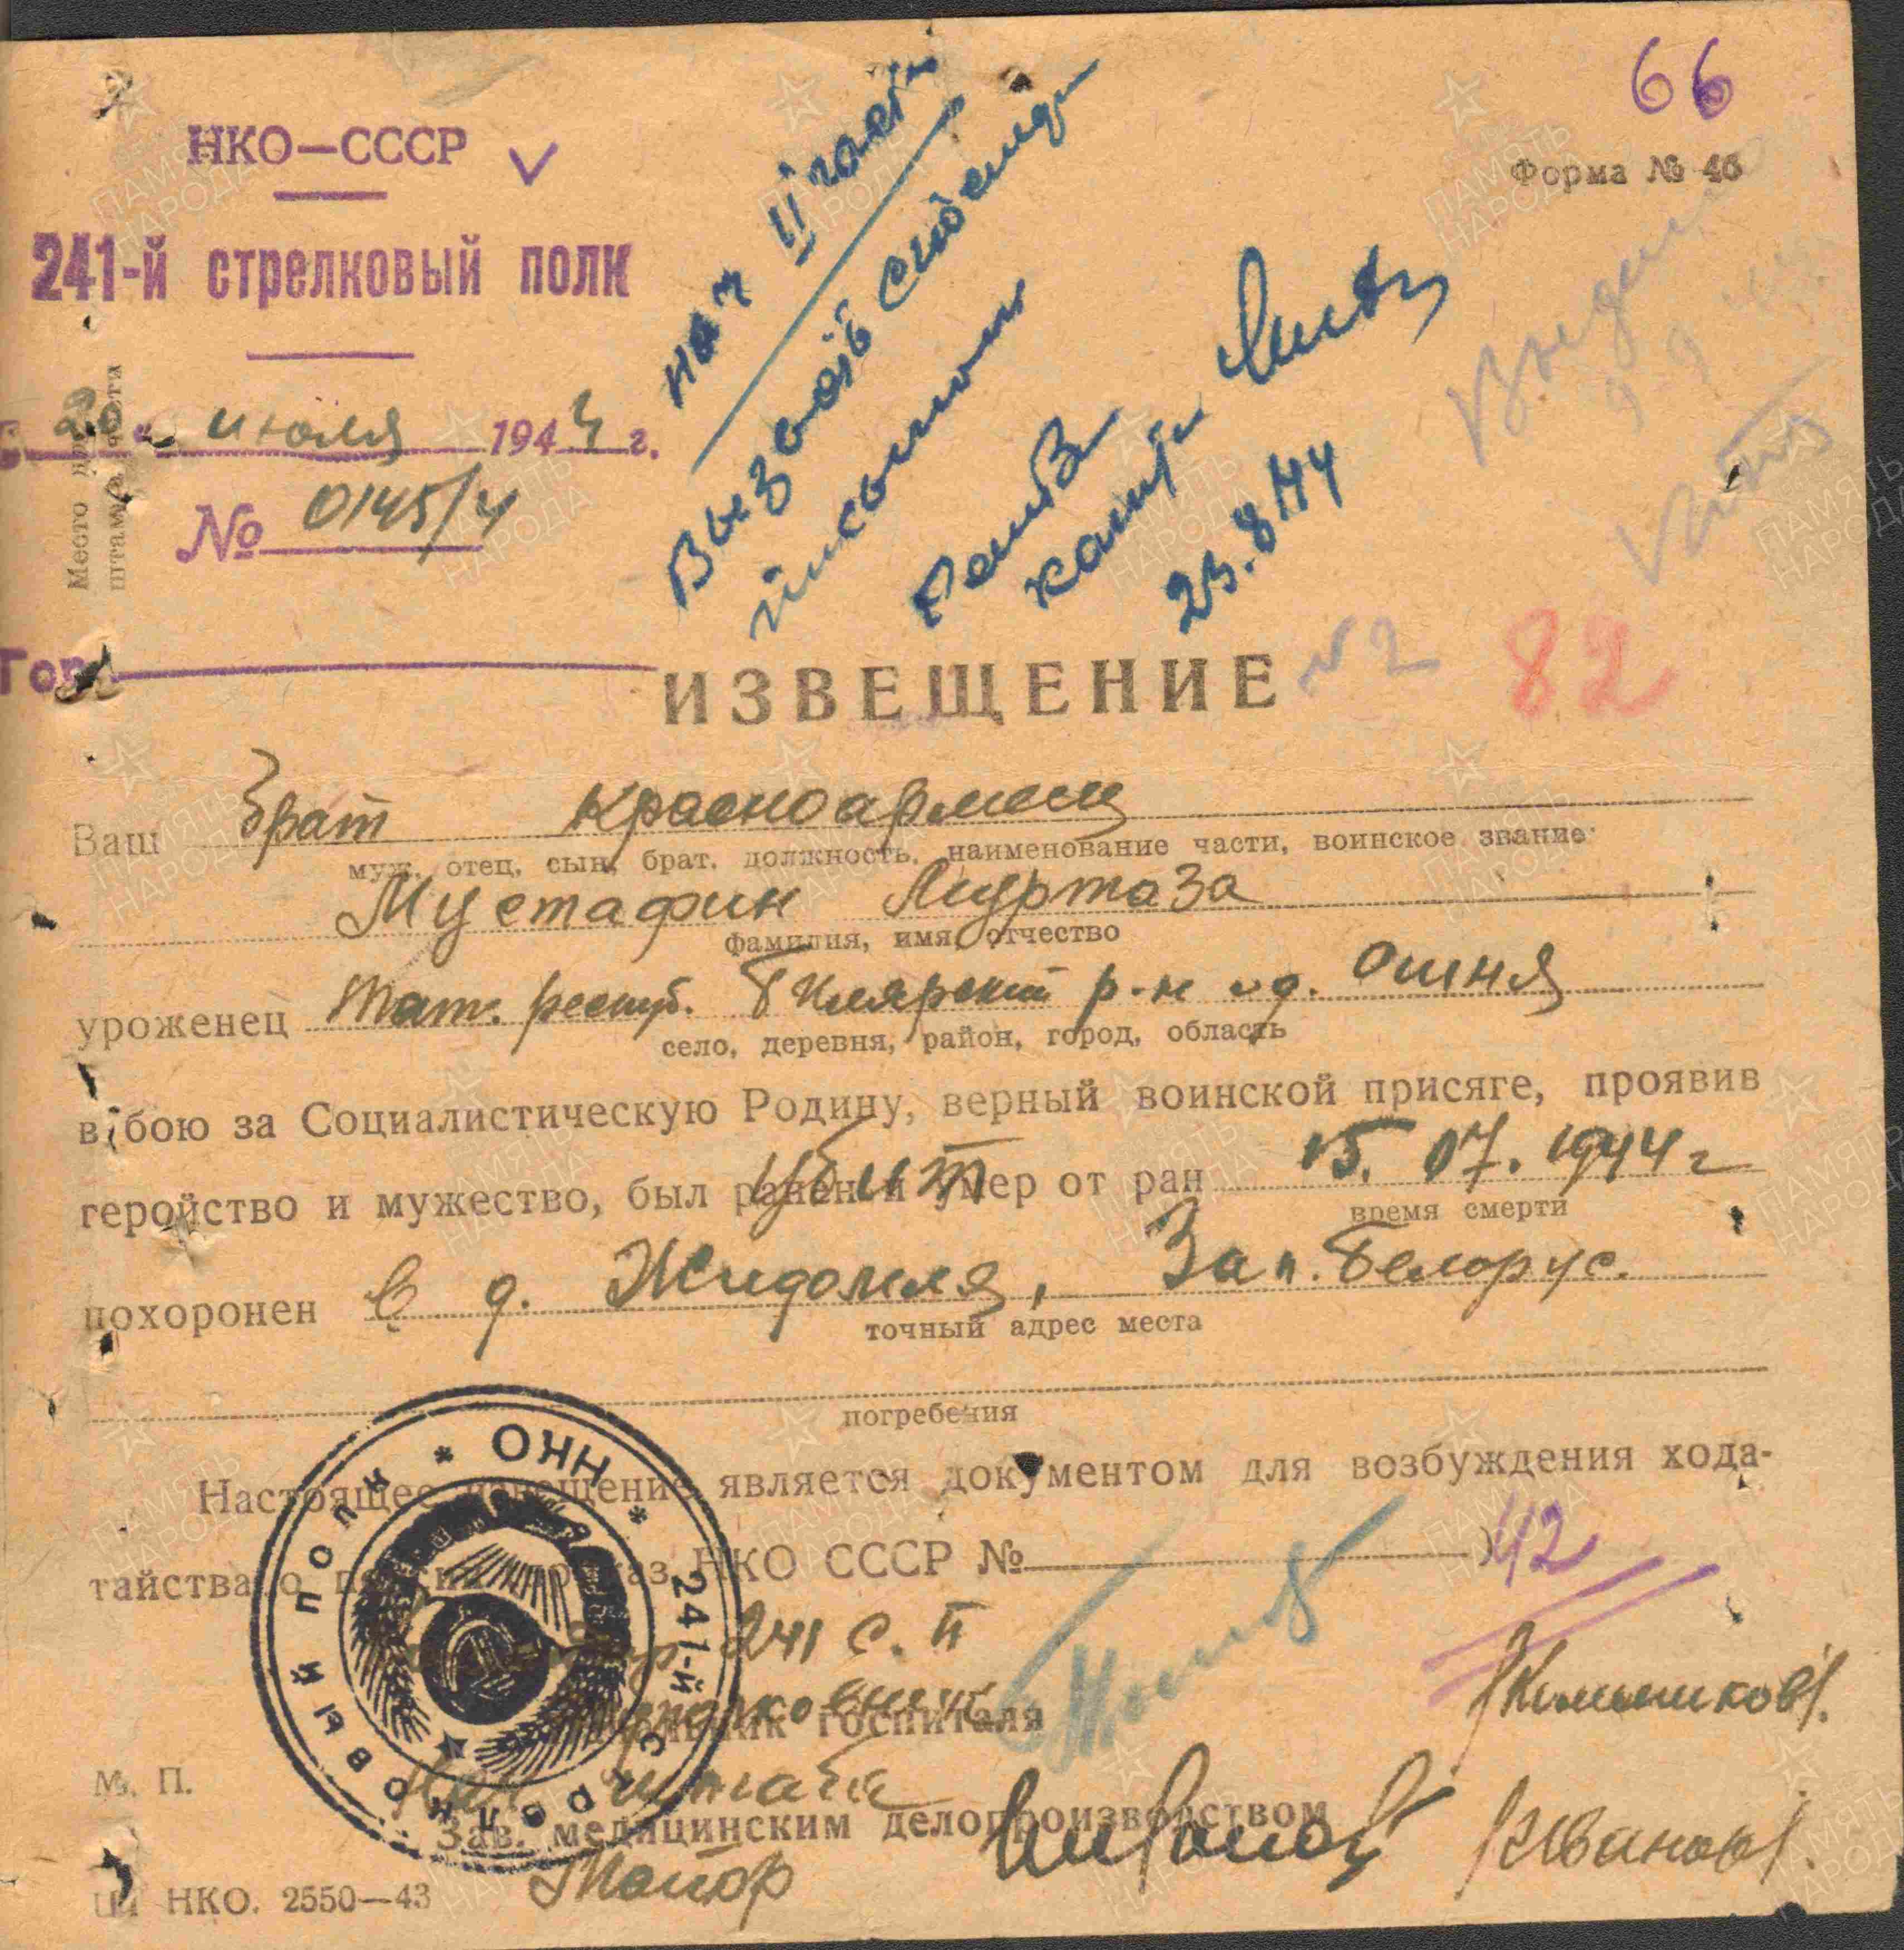 66
НКО—СССР
Форма № 46
241-й стрелковый полк
нач II части
Вызвать
20 " июля 1944 г.
№ 0145/4
23.8.44
Место для штампа части
Гор.
ИЗВЕЩЕНИЕ №2 82
Ваш брат красноармеец
муж, отец, сын, брат. должность, наименование части, воинское звание
Мустафин Муртаза
фамилия, имя, отчество
уроженец Тат. респуб. Билярский р-н д. Ошня
село, деревня, район, город, область
в бою за Социалистическую Родину, верный воинской присяге, проявив
геройство и мужество, был ранен и умер от ран убит 15.07.1944 г
время смерти
похоронен в д. Жидомля, Зап. Белорус.
точный адрес места
погребения
Настоящее извещение является документом для возбуждения хода-
тайства о пенсии приказ НКО СССР №
42
241 с.п
Подполковник
Начальник госпиталя
М. П.
Нач штаба
Зав. медицинским делопроизводством
Майор /Иванов/.
НКО. 2550—43
НКО * 241-й СТРЕЛКОВЫЙ ПОЛК *
ПАМЯТЬ НАРОДА